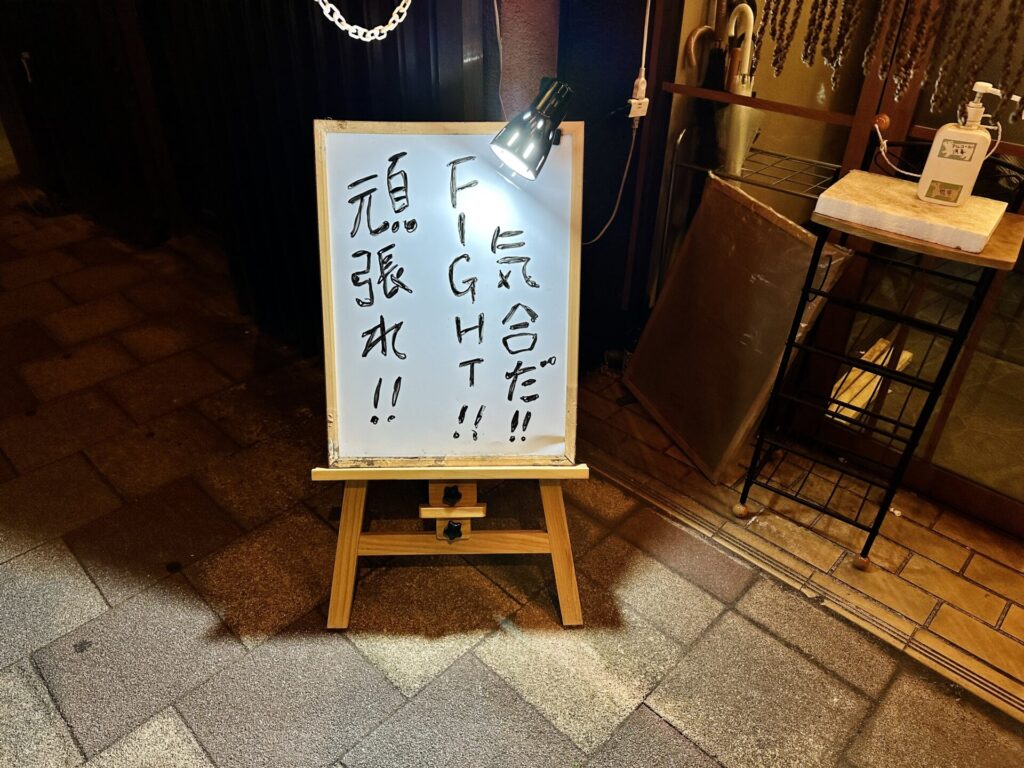 気合だ!!
FIGHT!!
頑張れ!!